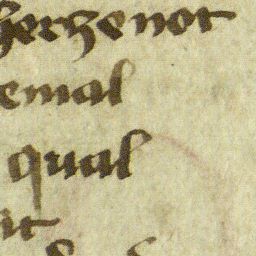 herzenot
emal
qual
it